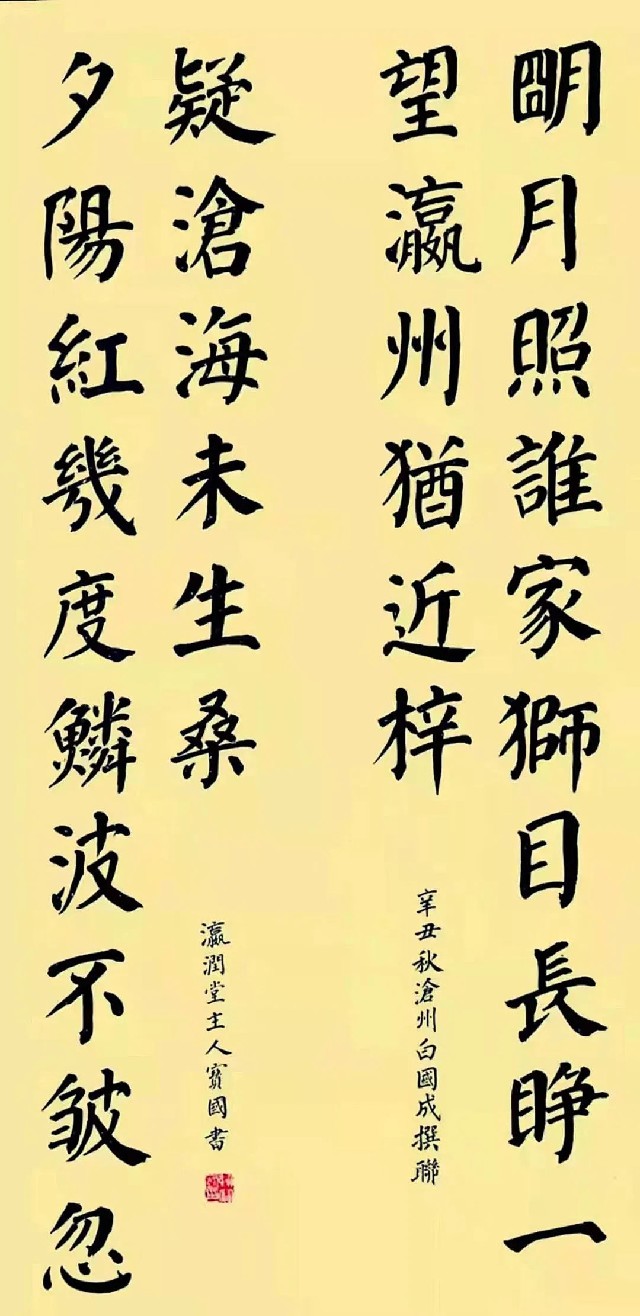 朙月照誰家獅目長睜一
望瀛州猶近梓
辛丑秋滄州白國成撰聯
夕陽紅幾度鱗波不皺忽
疑滄海未生桑
瀛潤堂主人寶國書